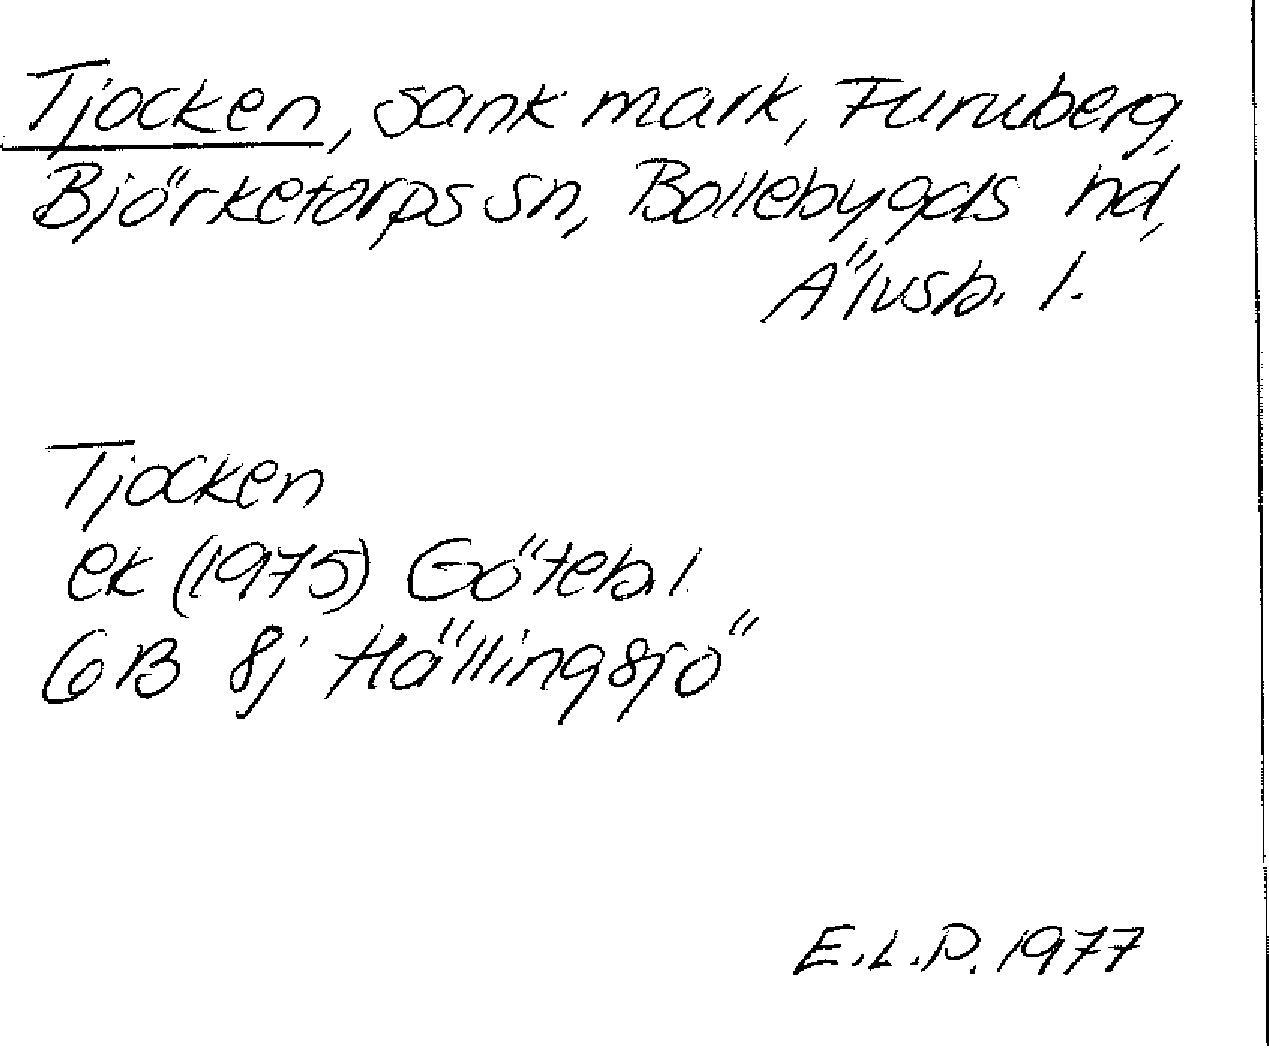 Tjocken, sank mark, Furuberg,
Björketorps sn, Bollebygds hd,
Älvsb. l.
Tjocken
ek (1975) Göteb. l
6B 8j Hällingsjö
E.L.P. 1977